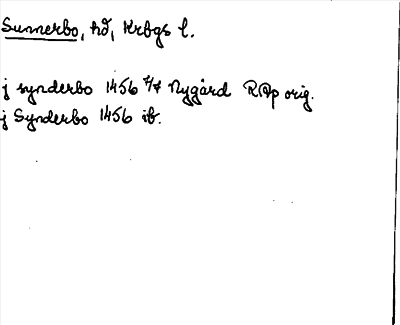 Sunnerbo, hd, Krbgs l.
j synderbo 1456 4/7 Nygård RAp orig.
j Synderbo 1456 ib.